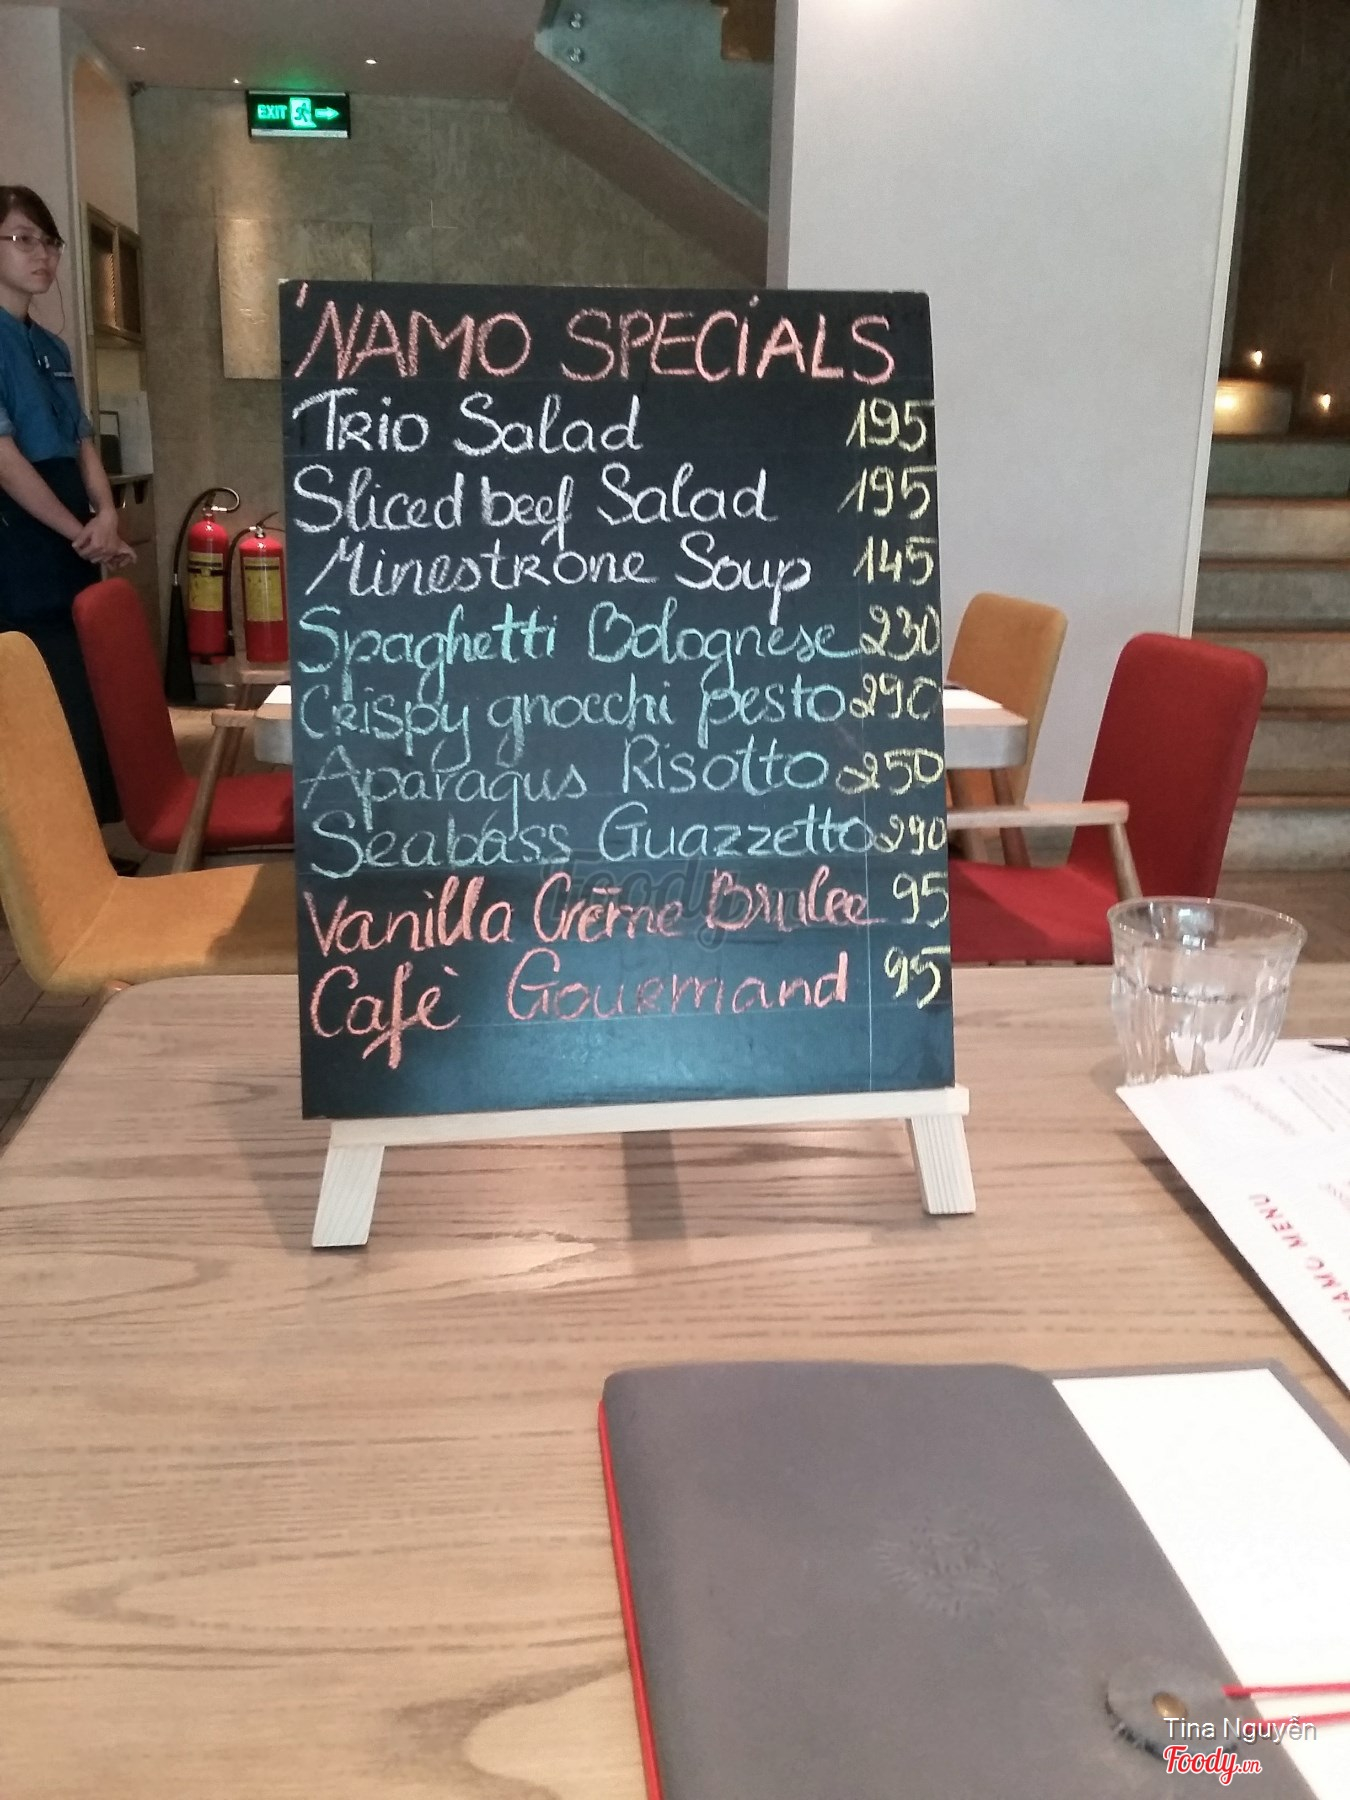 EXIT
'NAMO SPECIALS
Trio Salad 195
Sliced beef Salad 195
Minestrone Soup 145
Spaghetti Bolognese 230
Crispy gnocchi pesto 290
Aparagus Risotto 250
Seabass Guazzetto 290
Vanilla Crēme Brulee 95
Cafè Gourmand 95
Foody.vn
NAMO MENU
Tina Nguyễn
Foody.vn